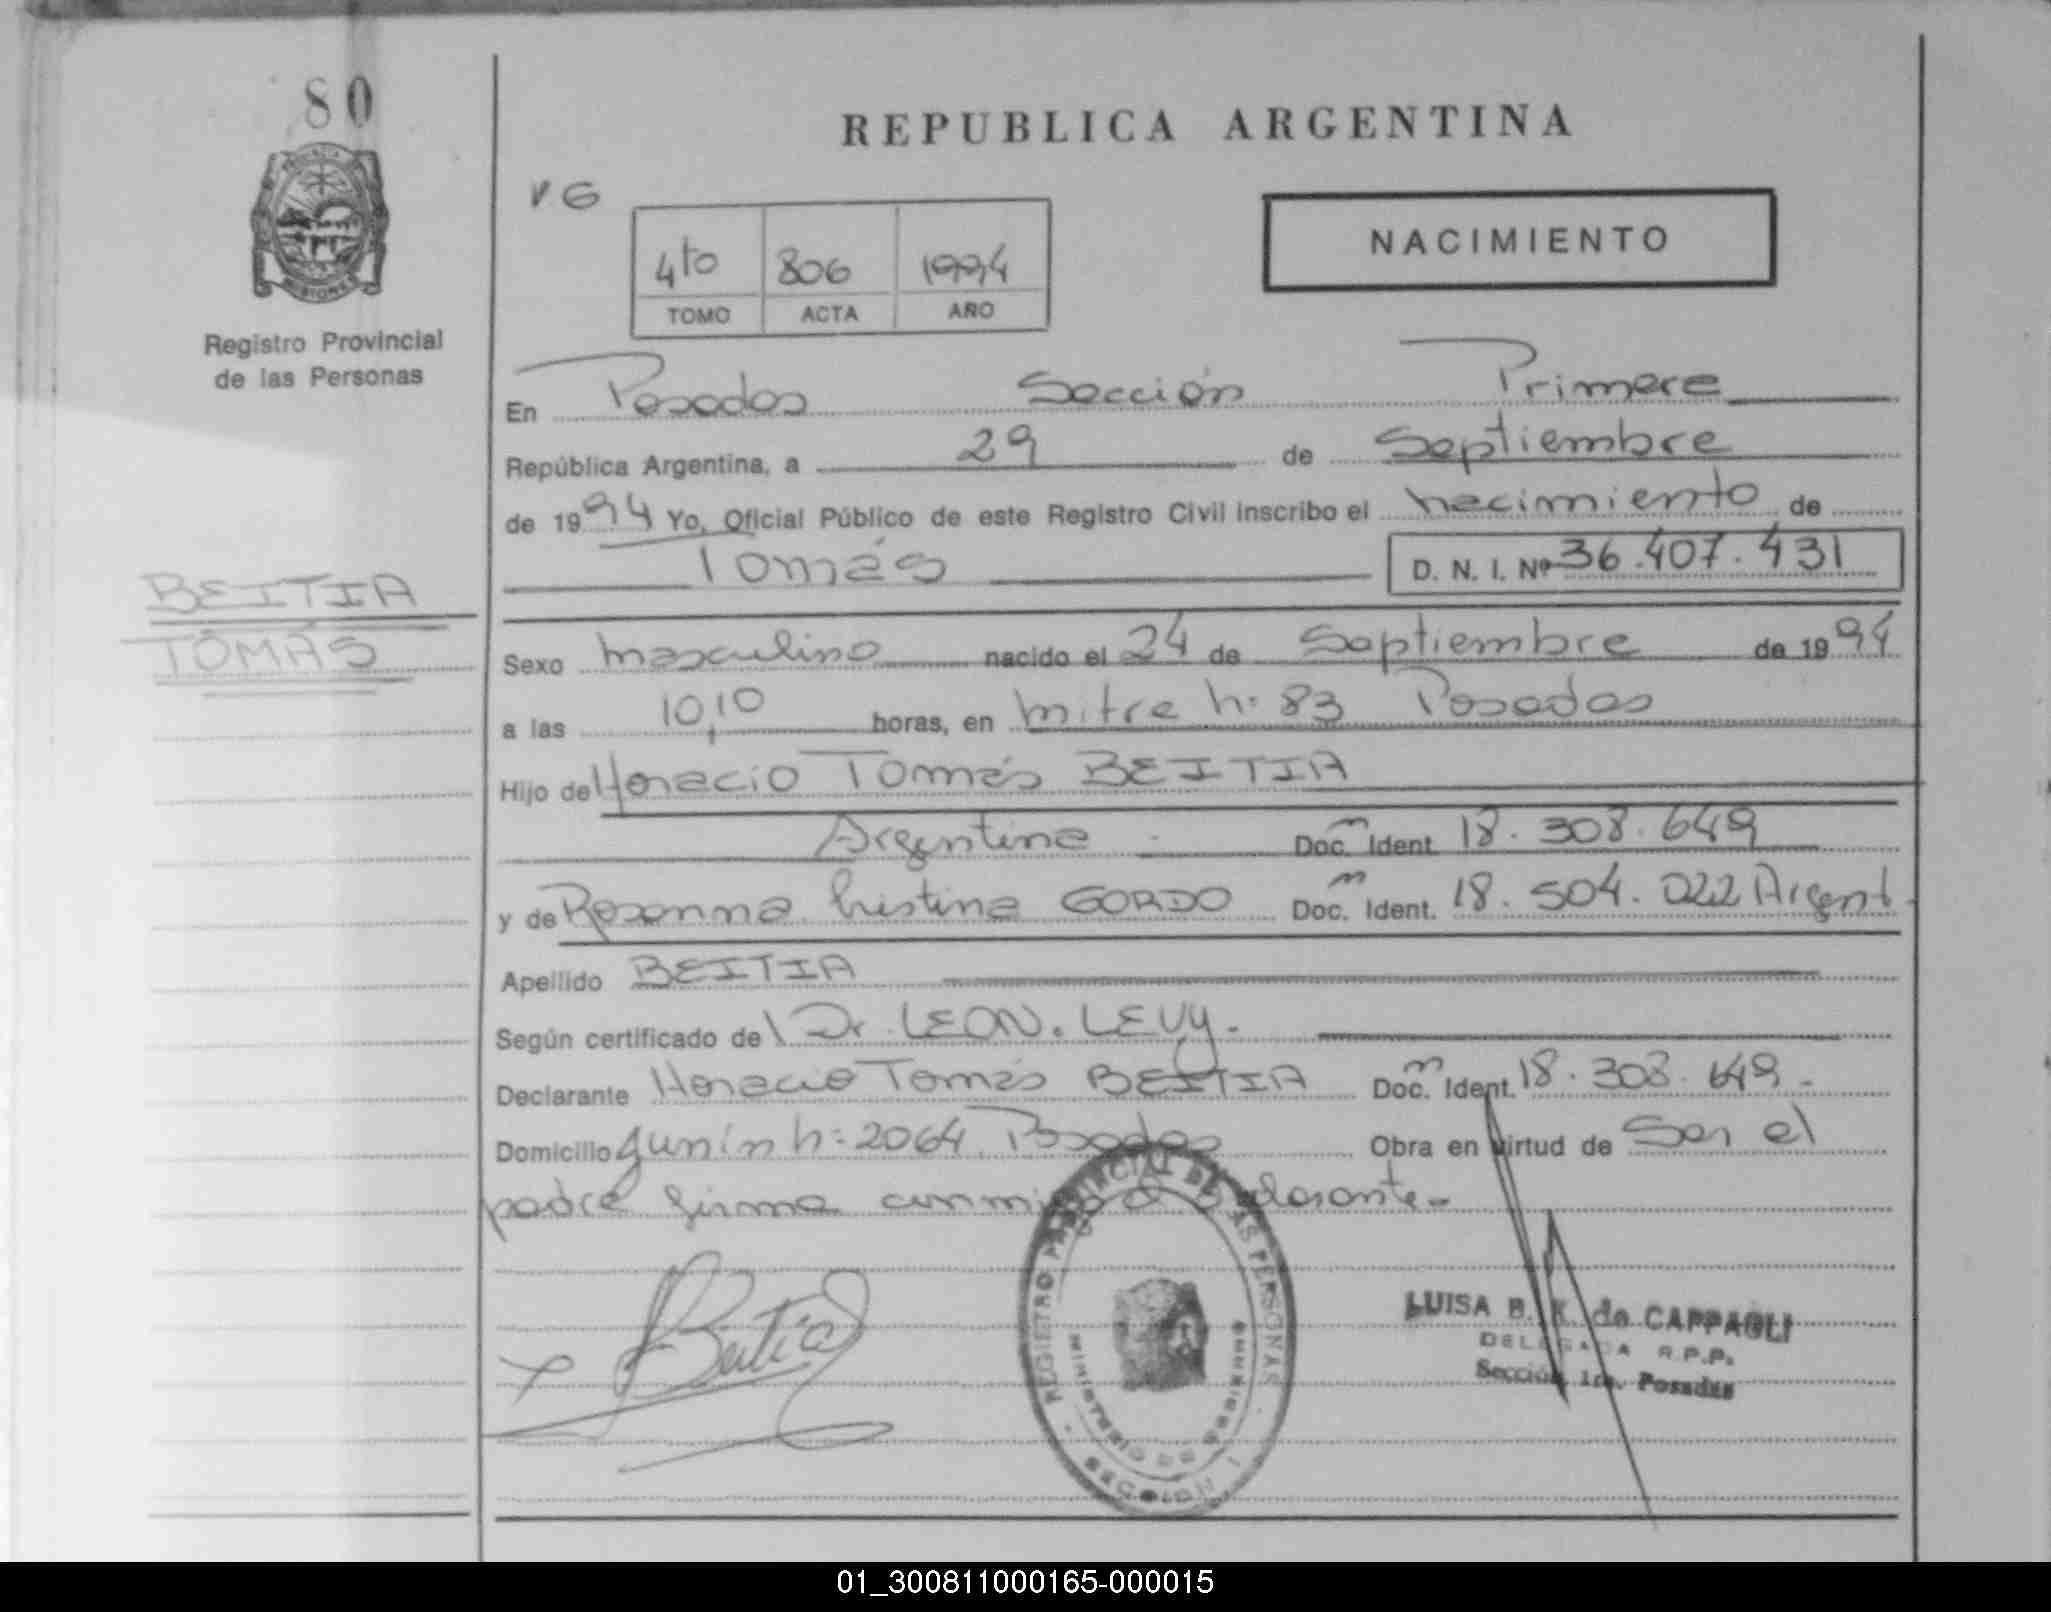 80
REPUBLICA ARGENTINA
VG
NACIMIENTO
4to 806 1994
TOMO ACTA AÑO
PROVINCIA DE
MISIONES
Registro Provincial
de las Personas
En Posadas Sección Primera
República Argentina, a 29 de Septiembre
de 1994 Yo, Oficial Público de este Registro Civil inscribo el nacimiento de
Tomás D. N. I. Nº 36.407.431
BEITIA
TOMÁS
Sexo masculino nacido el 24 de Septiembre de 1994
a las 10,10 horas, en mitre n: 83 Posadas
Hijo de Horacio Tomás BEITIA
Argentina - Doc. m Ident. 18.308.649
y de Rosanna Cristina GORDO Doc. m Ident. 18.504.022 Argent.
Apellido BEITIA
Según certificado del Dr. LEON. LEVY.
Declarante Horacio Tomás BEITIA Doc. m Ident. 18.308.649.-
Domicilio Junín n: 2064 Posadas Obra en virtud de Ser el
padre firma conmigo el declarante.-
x Beitia
REGISTRO PROVINCIAL DE LAS PERSONAS
MINISTERIO DE GOBIERNO
SECCION 1
LUISA B. K. de CAPPAGLI
DELEGADA R.P.P.
Sección 1ra. Posadas
01_300811000165-000015